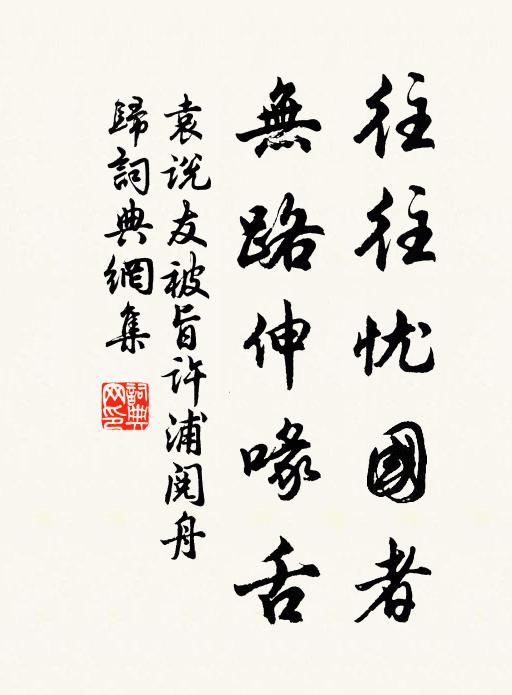 往往忧國者
無路伸喙舌
袁说友被旨许浦阅舟
歸詞典網集
詞典網印